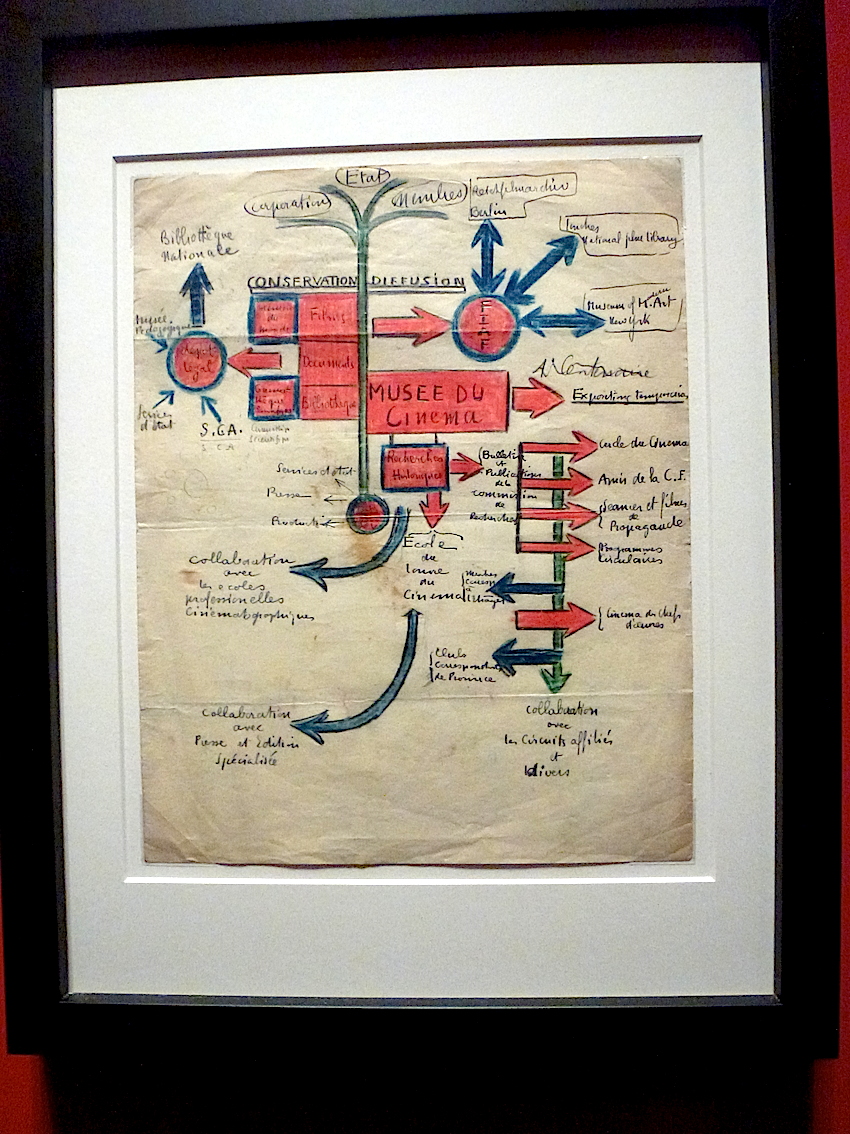 Etat
Corporation
Membres
Reichfilmarchiv
Berlin
Londres
National film library
Bibliothèque
Nationale
CONSERVATION DIFFUSION
Museum of M. Art
New York
Musée
Pédagogique
Films
FIAF
Dépôt
légal
Documents
Bibliothèque
MUSEE DU
Cinema
Exposition temporaire
Services
d'état
S.C.A.
Recherches
Historiques
Bulletin
et
Publications
de la
Commission
de Recherches
Cercle du Cinema
Amis de la C.F.
Séances et films
de
Propagande
Programmes
Circulaires
Services d'état
Presse
Ecole
du
Louvre
du
Cinema
Collaboration
avec
les ecoles
professionelles
Cinématographiques
Cinema des chefs
d'œuvres
Clubs
Correspondants
de Province
Collaboration
avec
Presse et Edition
Spécialisée
Collaboration
avec
les Circuits affiliés
et
divers